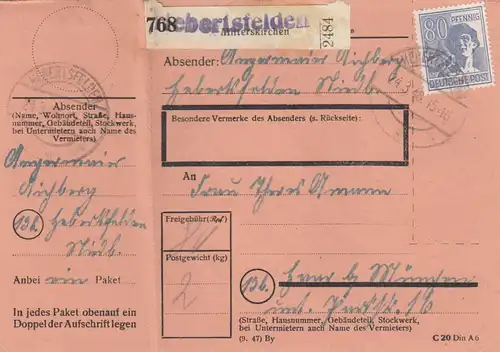 768 Hebertsfelden
Mitterskirchen
2484
80 PFENNIG
DEUTSCHE POST
HEBERTSFELDEN
Absender
(Name, Wohnort, Straße, Haus-
nummer, Gebäudeteil, Stockwerk,
bei Untermietern auch Name des
Vermieters)
Angermeier
Aichberg
13b Hebertsfelden
Niedb.
Anbei ein Paket
In jedes Paket obenauf ein
Doppel der Aufschrift legen
Absender: Angermeier Aichberg
Hebertsfelden Niedb.
Besondere Vermerke des Absenders (s. Rückseite):
An
Frau Theres Ammann
Freigebühr (Rpf)
80
Postgewicht (kg)
2
13b Haar b München
(Straße, Hausnummer, Gebäudeteil, Stockwerk,
bei Untermietern auch Name des Vermieters)
(9. 47) By
C 20 Din A 6